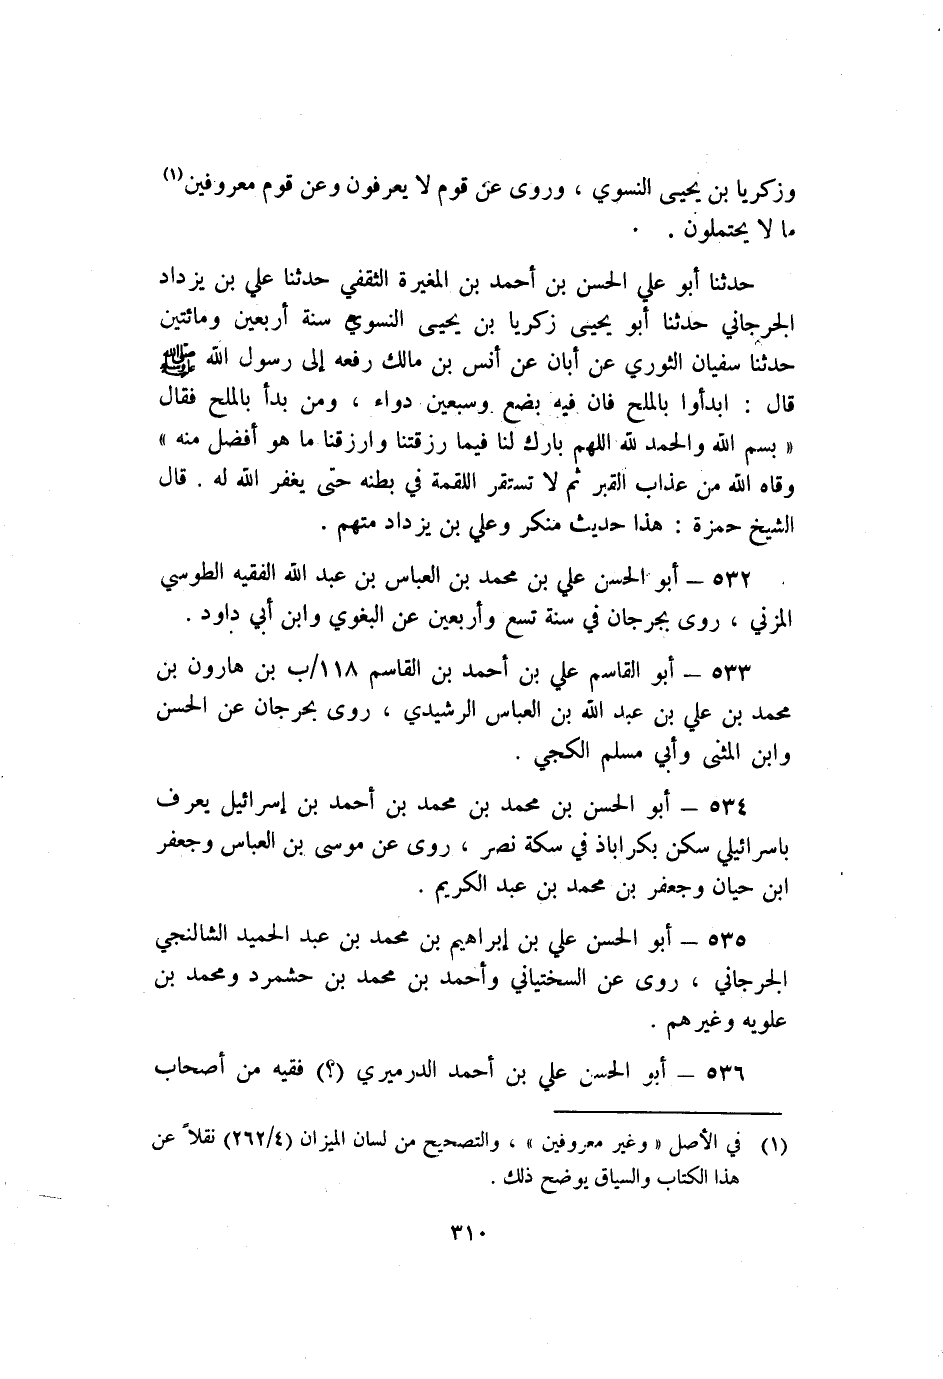 وزكريا بن يحيى النسوي ، وروى عن قوم لا يعرفون وعن قوم معروفين(١)
ما لا يحتملون .
حدثنا أبو علي الحسن بن أحمد بن المغيرة الثقفي حدثنا علي بن يزداد
الجرجاني حدثنا أبو يحيى زكريا بن يحيى النسوي سنة أربعين ومائتين
حدثنا سفيان الثوري عن أبان عن أنس بن مالك رفعه إلى رسول الله ﷺ
قال : ابدأوا بالملح فان فيه بضع وسبعين دواء ، ومن بدأ بالملح فقال
« بسم الله والحمد لله اللهم بارك لنا فيما رزقتنا وارزقنا ما هو أفضل منه »
وقاه الله من عذاب القبر ثم لا تستقر اللقمة في بطنه حتى يغفر الله له . قال
الشيخ حمزة : هذا حديث منكر وعلي بن يزداد متهم .
٥٣٢ – أبو الحسن علي بن محمد بن العباس بن عبد الله الفقيه الطوسي
المزني ، روى بجرجان في سنة تسع وأربعين عن البغوي وابن أبي داود .
٥٣٣ – أبو القاسم علي بن أحمد بن القاسم ١١٨/ب بن هارون بن
محمد بن علي بن عبد الله بن العباس الرشيدي ، روى بجرجان عن الحسن
وابن المثنى وأبي مسلم الكجي .
٥٣٤ – أبو الحسن بن محمد بن محمد بن أحمد بن إسرائيل يعرف
باسرائيلي سكن بكراباذ في سكة نصر ، روى عن موسى بن العباس وجعفر
ابن حيان وجعفر بن محمد بن عبد الكريم .
٥٣٥ – أبو الحسن علي بن إبراهيم بن محمد بن عبد الحميد الشالنجي
الجرجاني ، روى عن السختياني وأحمد بن محمد بن حشمرد ومحمد بن
علويه وغيرهم .
٥٣٦ – أبو الحسن علي بن أحمد الدرميري (؟) فقيه من أصحاب
(١) في الأصل « وغير معروفين » ، والتصحيح من لسان الميزان (٢٦٢/٤) نقلاً عن
هذا الكتاب والسياق يوضح ذلك .
٣١٠